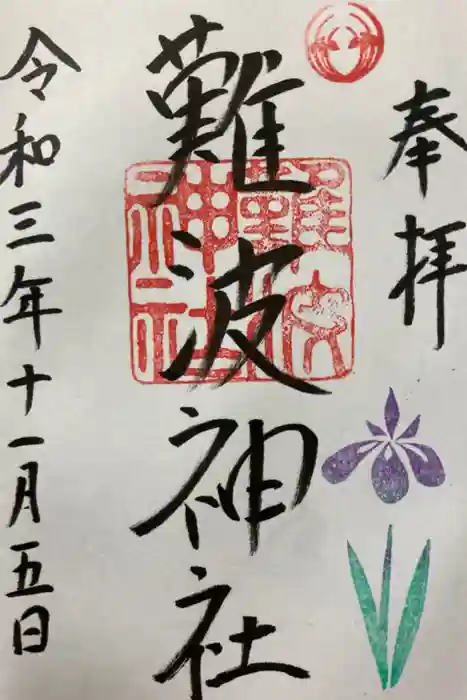 奉拝
難波神社
難波神社
令和三年十一月五日